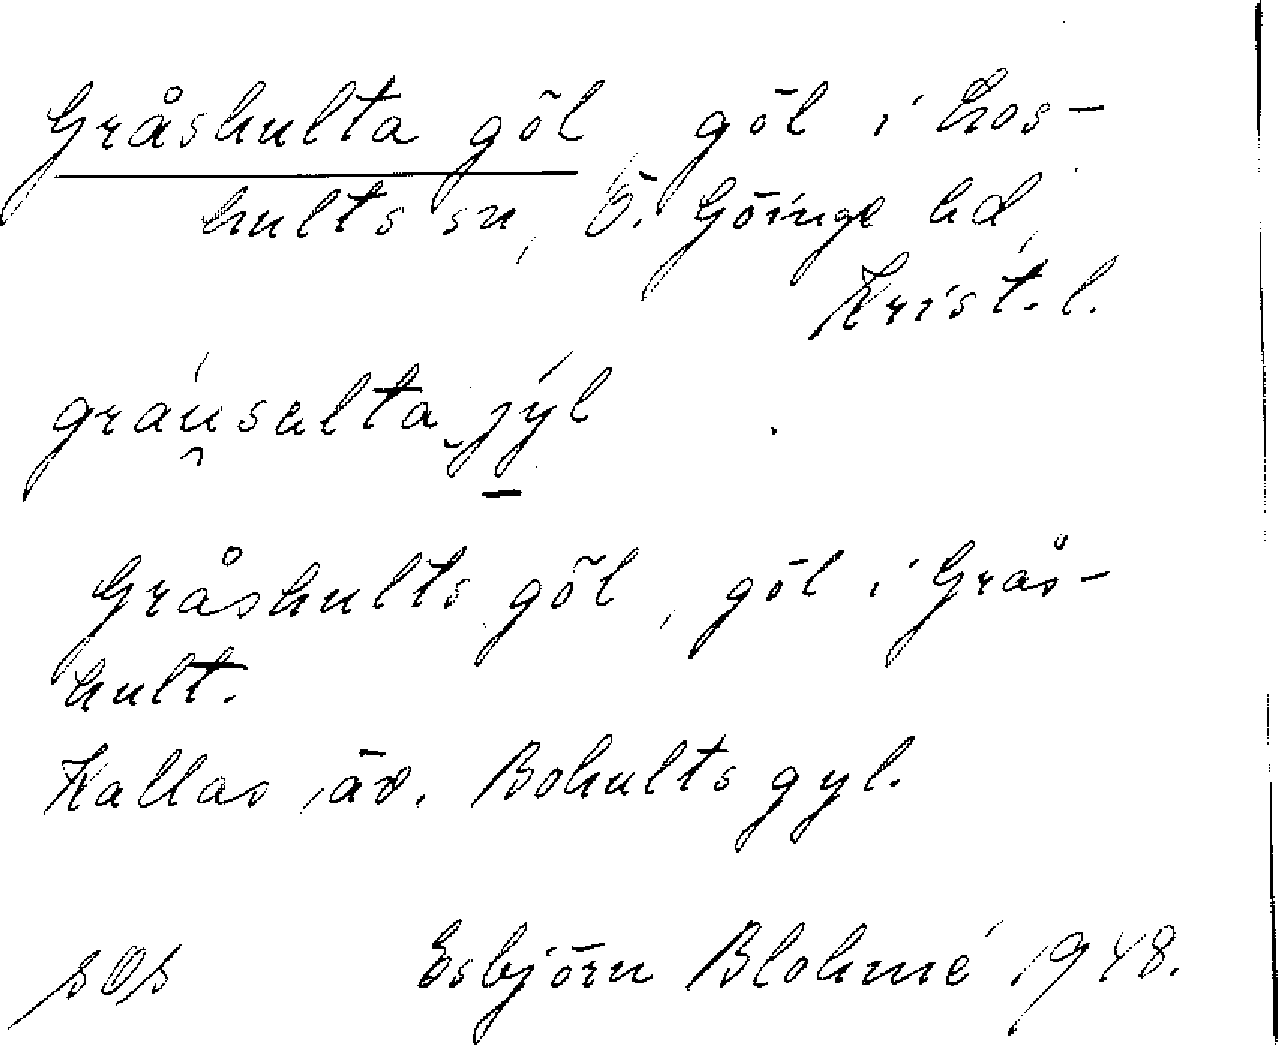 Gråshulta göl, göl i Los-
hults sn, Ö. Göinge hd,
Krist. l.
gráu̯salta jýl
Gråshults göl, göl i Grås-
hult.
Kallas äv. Bohults gyl.
Esbjörn Blohmé 1948.